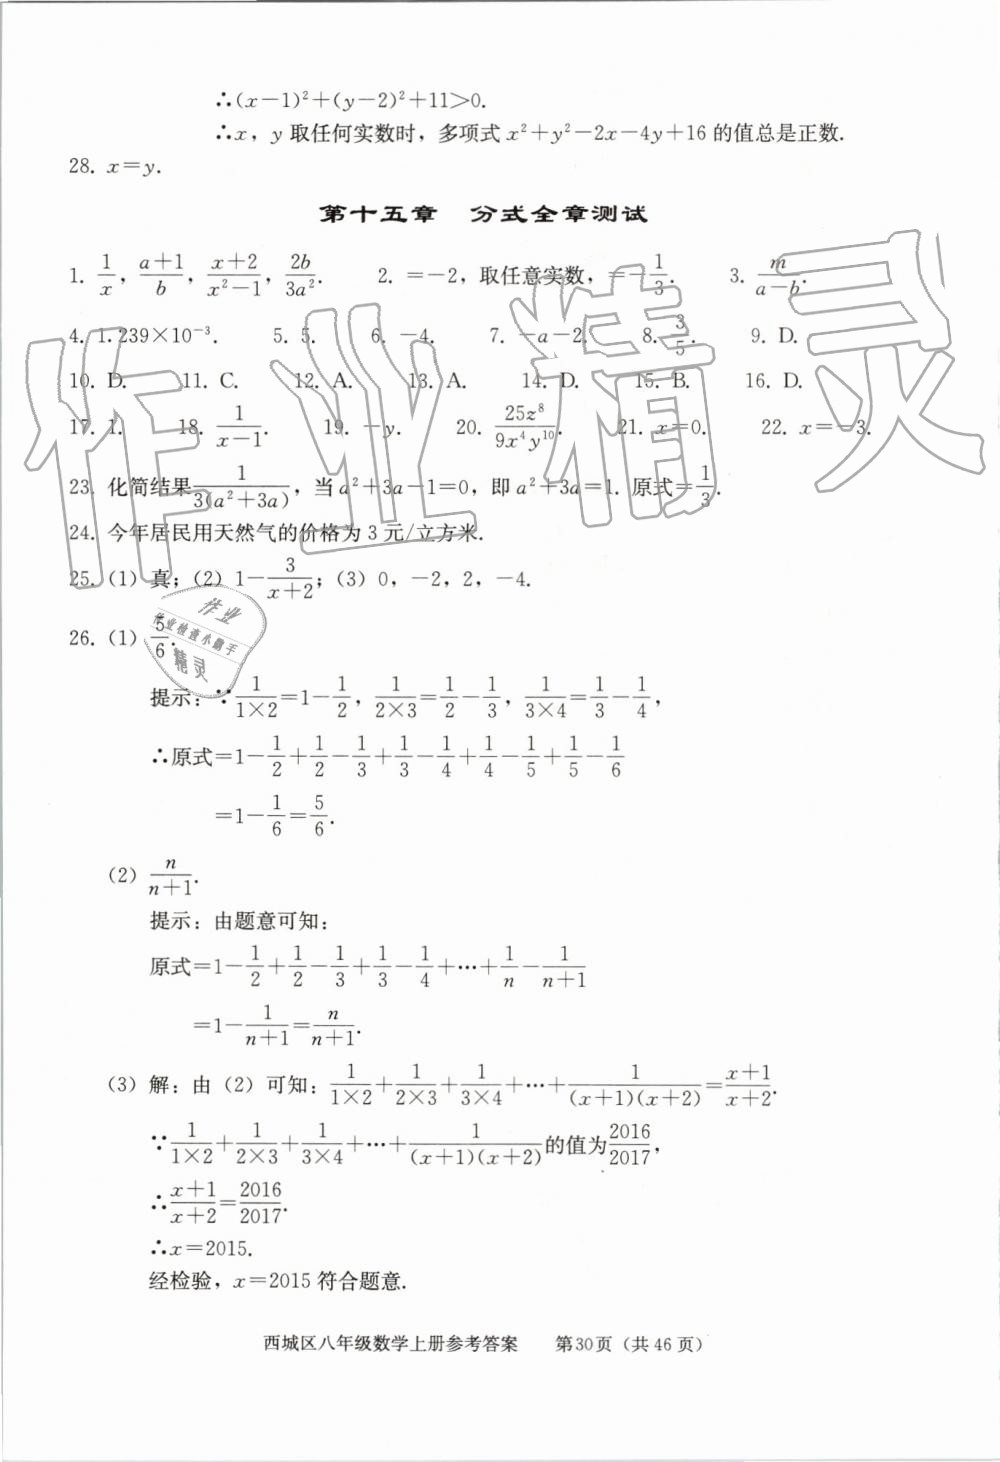 ∴(x-1)²+(y-2)²+11>0.
∴x，y 取任何实数时，多项式 x²+y²-2x-4y+16 的值总是正数.
28. x=y.
第十五章 分式全章测试
1. 1/x, (a+1)/b, (x+2)/(x²-1), 2b/(3a²). 2. =-2，取任意实数，=-1/3. 3. m/(a-b).
4. 1.239×10⁻³. 5. 5. 6. -4. 7. -a-2. 8. 3/5. 9. D.
10. D. 11. C. 12. A. 13. A. 14. D. 15. B. 16. D.
17. 1. 18. 1/(x-1). 19. -y. 20. 25z⁸/(9x⁴y¹⁰). 21. x=0. 22. x=-3.
23. 化简结果 1/(3(a²+3a))，当 a²+3a-1=0，即 a²+3a=1. 原式=1/3.
24. 今年居民用天然气的价格为 3 元/立方米.
25. (1) 真；(2) 1-3/(x+2)；(3) 0，-2，2，-4.
26. (1) 5/6.
提示：∵1/(1×2)=1-1/2，1/(2×3)=1/2-1/3，1/(3×4)=1/3-1/4，
∴原式=1-1/2+1/2-1/3+1/3-1/4+1/4-1/5+1/5-1/6
=1-1/6=5/6.
(2) n/(n+1).
提示：由题意可知：
原式=1-1/2+1/2-1/3+1/3-1/4+…+1/n-1/(n+1)
=1-1/(n+1)=n/(n+1).
(3) 解：由 (2) 可知：1/(1×2)+1/(2×3)+1/(3×4)+…+1/((x+1)(x+2))=(x+1)/(x+2).
∵1/(1×2)+1/(2×3)+1/(3×4)+…+1/((x+1)(x+2))的值为2016/2017，
∴(x+1)/(x+2)=2016/2017.
∴x=2015.
经检验，x=2015 符合题意.
西城区八年级数学上册参考答案 第30页（共 46 页）
作业精灵
作业
作业检查小助手
精灵